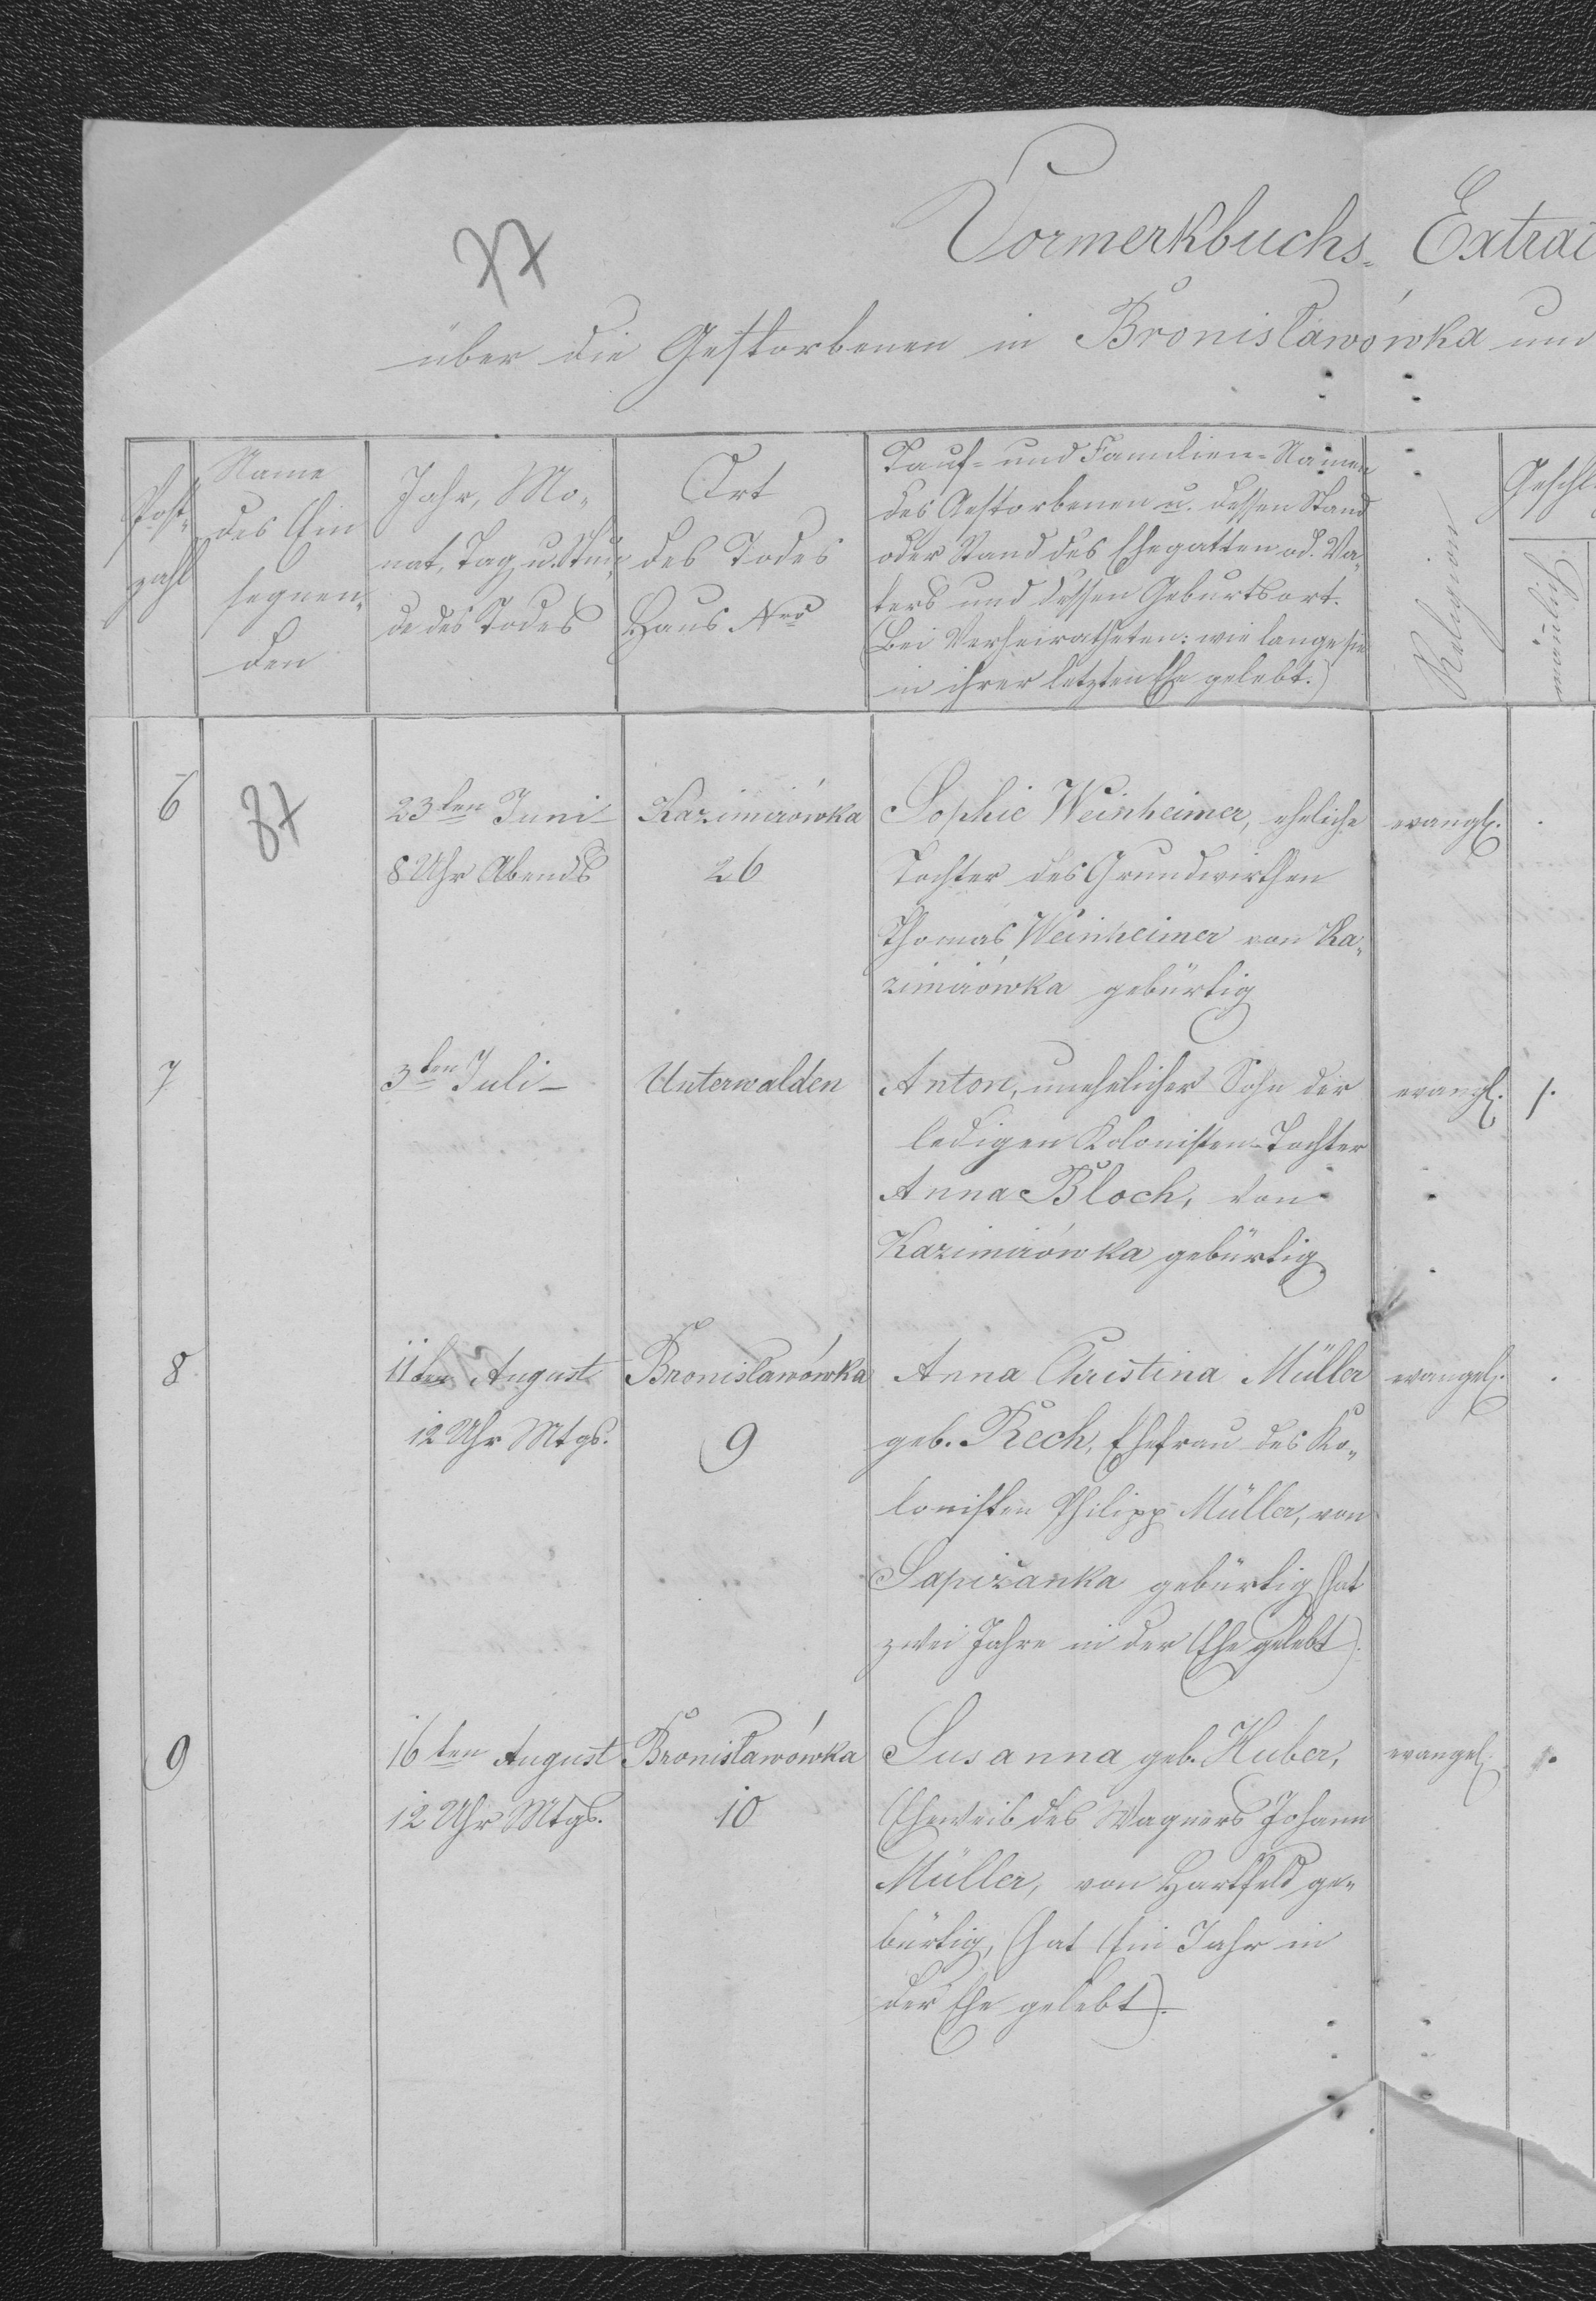 Vormerkbuchs- Extrai
77
über die Gestorbenen in Bronisławówka und
Post-
zahl
Name
des Ein
segnen-
den
Jahr, Mo-
nat, Tag u. Stun-
de des Todes
Ort
des Todes
Haus Nro
Tauf- und Familien-Namen
des Gestorbenen u. dessen Stand
oder Stand des Ehegatten od. Va-
ters und dessen Geburtsort.
(Bei Verheiratheten: wie lange sie
in ihrer letzten Ehe gelebt.)
Religion
Geschl
6
87
23ten Juni
8 Uhr Abends
Kazimirówka
26
Sophie Weinheimer, eheliche
Tochter des Grundwirthen
Thomas Weinheimer von Ka-
zimirówka gebürtig
evangl.
7
3ten Juli
Unterwalden
Anton, unehelicher Sohn der
ledigen Kolonisten-Tochter
Anna Bloch, von
Kazimirówka gebürtig
evangl.
1.
8
11ten August
12 Uhr Mtgs.
Bronisławówka
9
Anna Christina Müller
geb. Rech, Ehefrau des Ko-
lonisten Philipp Müller, von
Sapiżanka gebürtig (hat
zwei Jahre in der Ehe gelebt).
evangel.
9
16ten August
12 Uhr Mtgs.
Bronisławówka
10
Susanna geb. Huber,
Eheweib des Wagners Johann
Müller, von Hartfeld ge-
bürtig, (hat Ein Jahr in
der Ehe gelebt).
evangel.